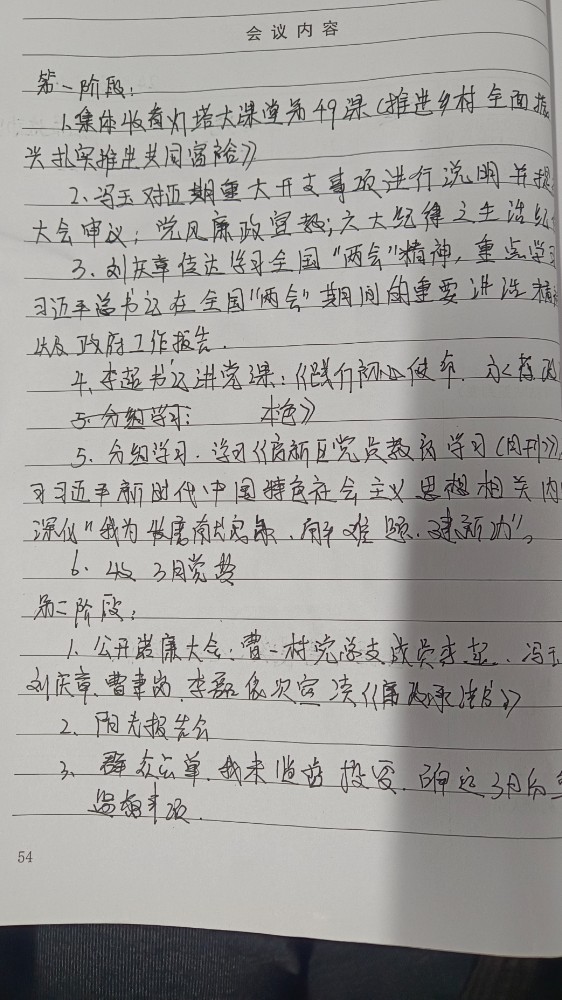 会议内容
第一阶段：
1.集体收看灯塔大课堂第49课《推进乡村全面振
兴扎实推进共同富裕》
2.冯玉对近期重大开支事项进行说明并提
大会审议；党风廉政宣教；六大纪律之生活纪
3、刘庆章传达学习全国“两会”精神，重点学习
习近平总书记在全国“两会”期间的重要讲话精神
以及政府工作报告．
4、李超书记讲党课：《践行初心使命．永葆政
5.分组学习： 本色》
5、分组学习．学习《高新区党员教育学习（周刊）》
习习近平新时代中国特色社会主义思想相关内
深化“我为发展献实策、解难题、建新功”。
6．收3月党费
第二阶段：
1．公开诺廉大会．曹一村党总支成员李超．冯玉
刘庆章．曹聿岗．李磊依次宣读《廉政承诺书》
2．阳光报告会
3．群众点单．我来监督投票．确定3月份
监督事项．
54